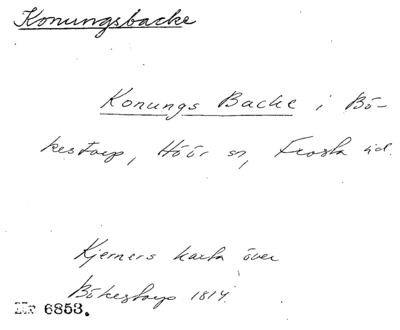 Konungsbacke
Konungs Backe i Bö-
kestorp, Höör sn, Frosta hd.
Kjerners karta över
Bökestorp 1814.
Nr 6853.